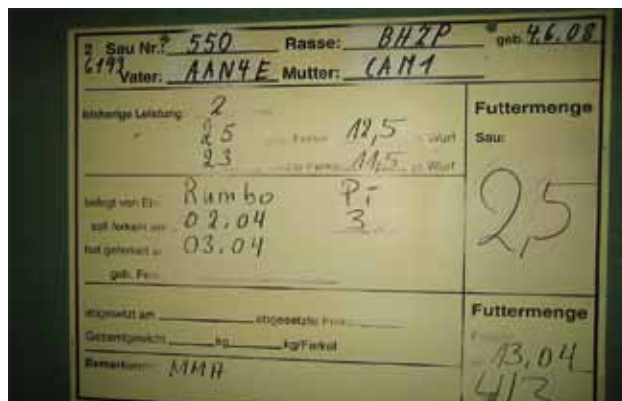 2 Sau Nr.: 550 Rasse: BHZP geb. 4.6.08
6193 Vater: AAN4E Mutter: CAM1
bisherige Leistung 2
25 Ferkel 12,5 Wurf
23 Ferkel 11,5 Wurf
Futtermenge
Sau:
2,5
belegt von Eber Rumbo Pi
soll ferkeln am 02.04 3
hat geferkelt am 03.04
geb. Ferkel
abgesetzt am abgesetzte Ferkel
Gesamtgewicht kg kg/Ferkel
Futtermenge
13,04
Bemerkungen MMA